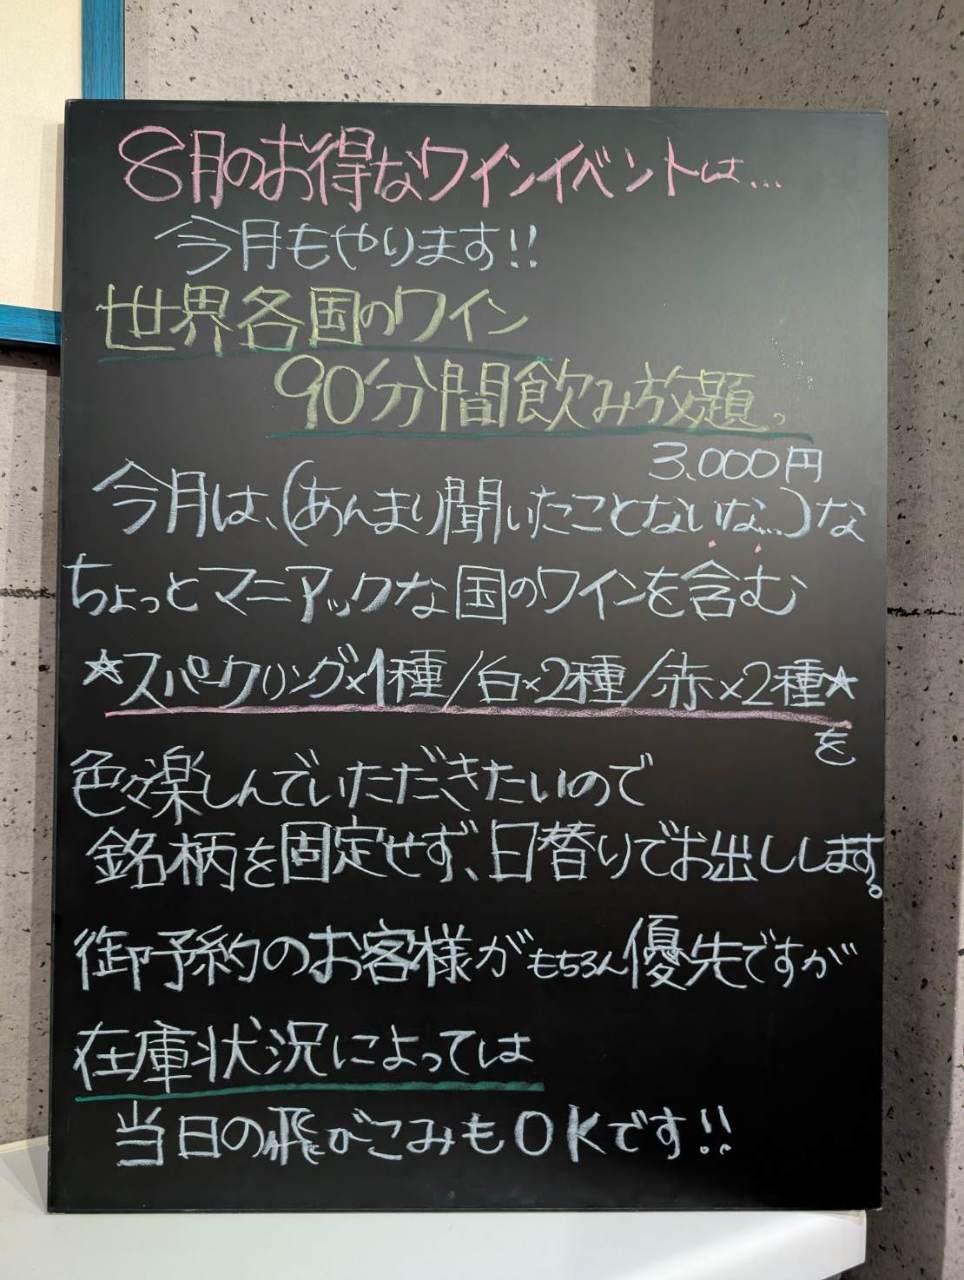 8月のお得なワインイベントは...
今月もやります!!
世界各国のワイン
90分間飲み放題。
3,000円
今月は、(あんまり聞いたことないな...)な
ちょっとマニアックな国のワインを含む
☆スパークリング×1種/白×2種/赤×2種☆
を
色々楽しんでいただきたいので
銘柄を固定せず、日替りでお出しします。
御予約のお客様がもちろん優先ですが
在庫状況によっては
当日の飛びこみもOKです!!